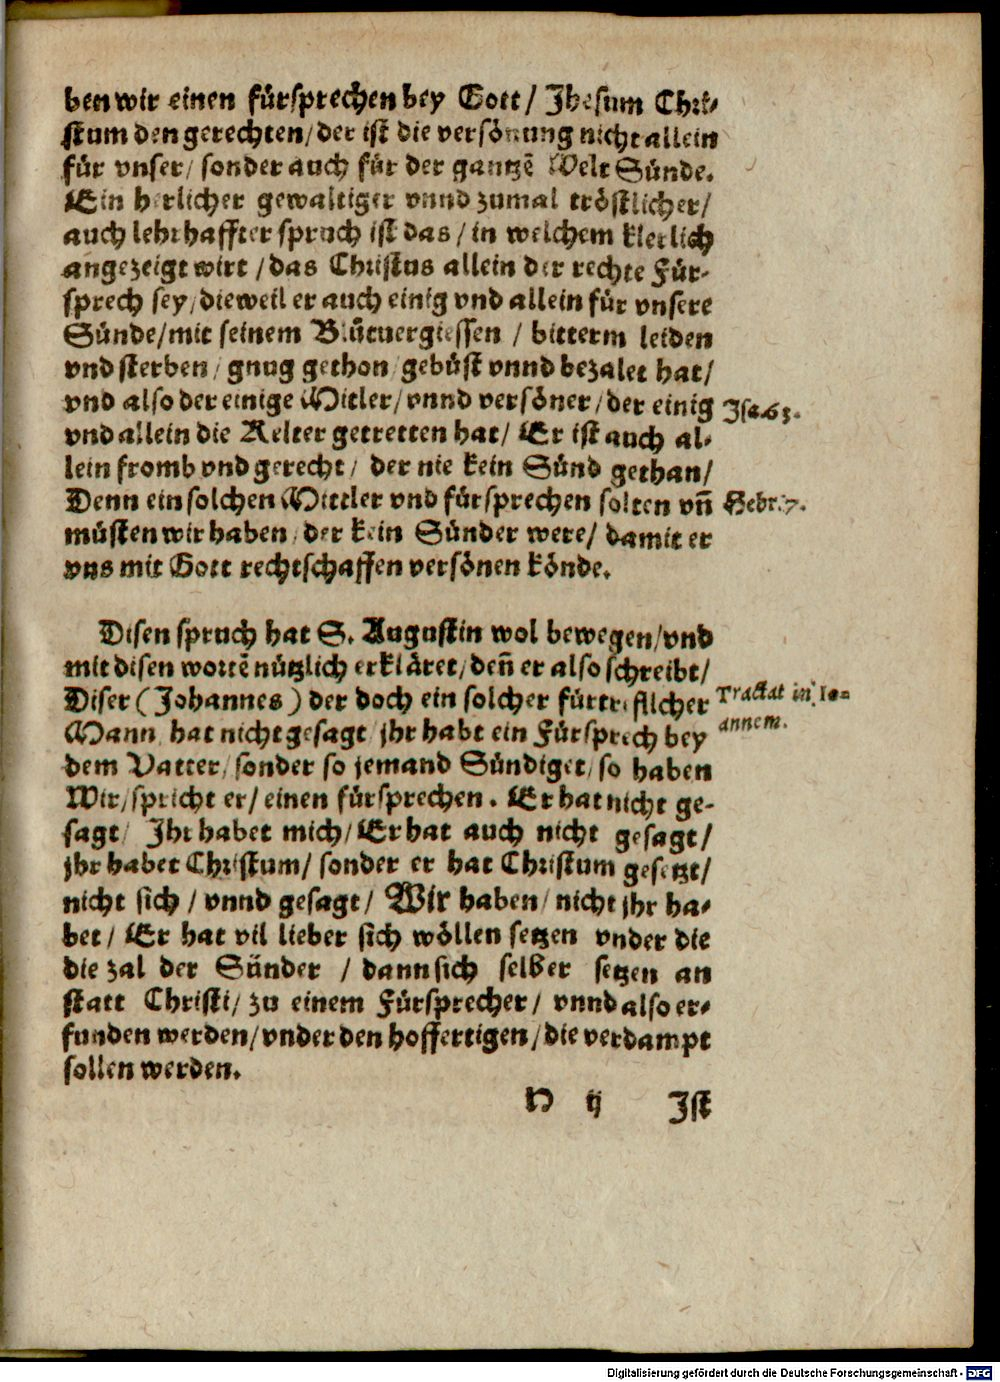 ben wir einen fürsprechen bey Gott / Jhesum Chri-
stum den gerechten / der ist die versönung nicht allein
für vnser / sonder auch für der gantzẽ Welt Sünde.
Ein herlicher gewaltiger vnnd zumal tröstlicher /
auch lehrhaffter spruch ist das / in welchem klerlich
angezeigt wirt / das Christus allein der rechte Für-
sprech sey / dieweil er auch einig vnd allein für vnsere
Sünde / mit seinem Blůtuergiessen / bitterm leiden
vnd sterben / gnug gethon / gebüst vnnd bezalet hat /
vnd also der einige Mitler / vnnd versöner / der einig
Jsa. 63.
vnd allein die Kelter getretten hat / Er ist auch al-
lein fromb vnd gerecht / der nie kein Sünd gethan /
Denn ein solchen Mittler vnd fürsprechen solten vñ
Hebr. 7.
müsten wir haben / der kein Sünder were / damit er
vns mit Gott rechtschaffen versönen könde.
Disen spruch hat S. Augustin wol bewegen / vnd
mit disen wortẽ nützlich erkläret / deñ er also schreibt /
Diser ( Johannes ) der doch ein solcher fürtreflicher
Tractat in Io-
annem.
Mann / hat nicht gesagt jhr habt ein Fürsprech bey
dem Vatter / sonder so jemand Sündiget / so haben
Wir / spricht er / einen fürsprechen. Er hat nicht ge-
sagt / Jhr habet mich / Er hat auch nicht gesagt /
jhr habet Christum / sonder er hat Christum gesetzt /
nicht sich / vnnd gesagt / Wir haben / nicht jhr ha-
bet / Er hat vil lieber sich wöllen setzen vnder die
die zal der Sünder / dann sich selber setzen an
statt Christi / zu einem Fürsprecher / vnnd also er-
funden werden / vnder den hoffertigen / die verdampt
sollen werden.
D ij Ist
Digitalisierung gefördert durch die Deutsche Forschungsgemeinschaft - DFG